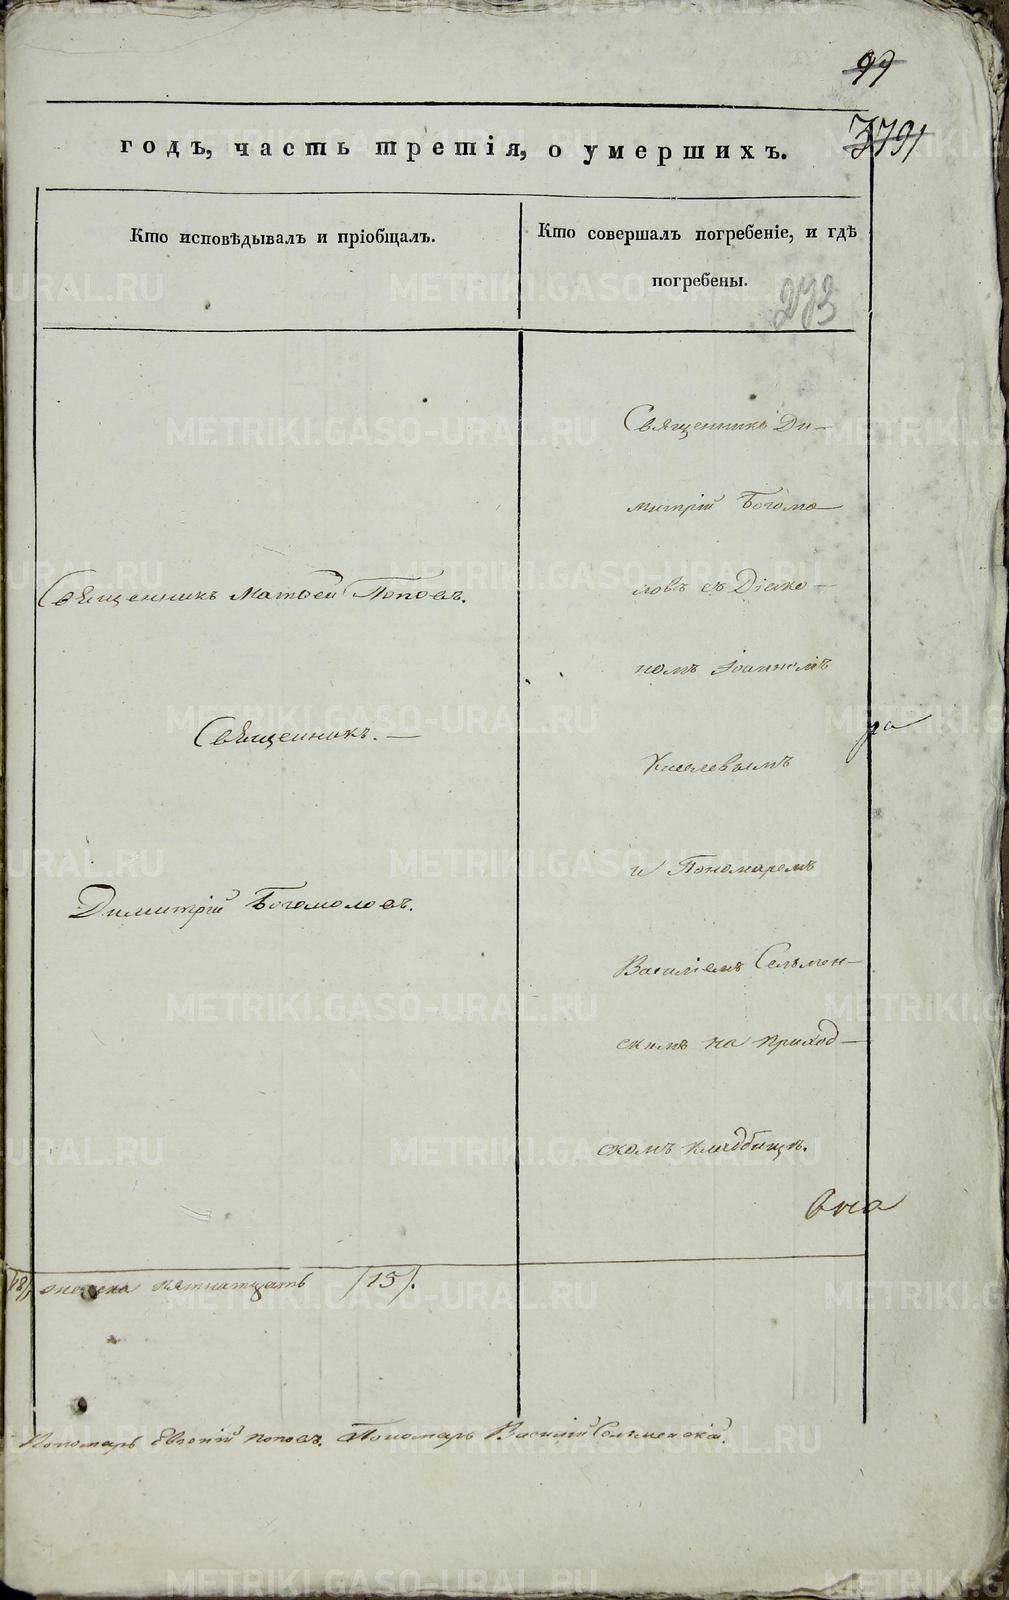 99
3791
годъ, часть третія, о умершихъ.
Кто исповѣдывалъ и пріобщалъ.
Кто совершалъ погребеніе, и гдѣ
погребены.
273
Священникъ Матѳей Поповъ.
Священникъ. —
Димитрій Богомоловъ.
Священникъ Ди—
митрій Богомо
ловъ съ Діако—
номъ Іоанномъ
Киселевымъ
и Пономаремъ
Василіемъ Сельмен—
скимъ на приход—
скомъ кладбищѣ.
ра
пятнатцать /15/.
Пономарь Евгеній Поповъ. Пономарь Василій Сельменскій.
METRIKI.GASO-URAL.RU